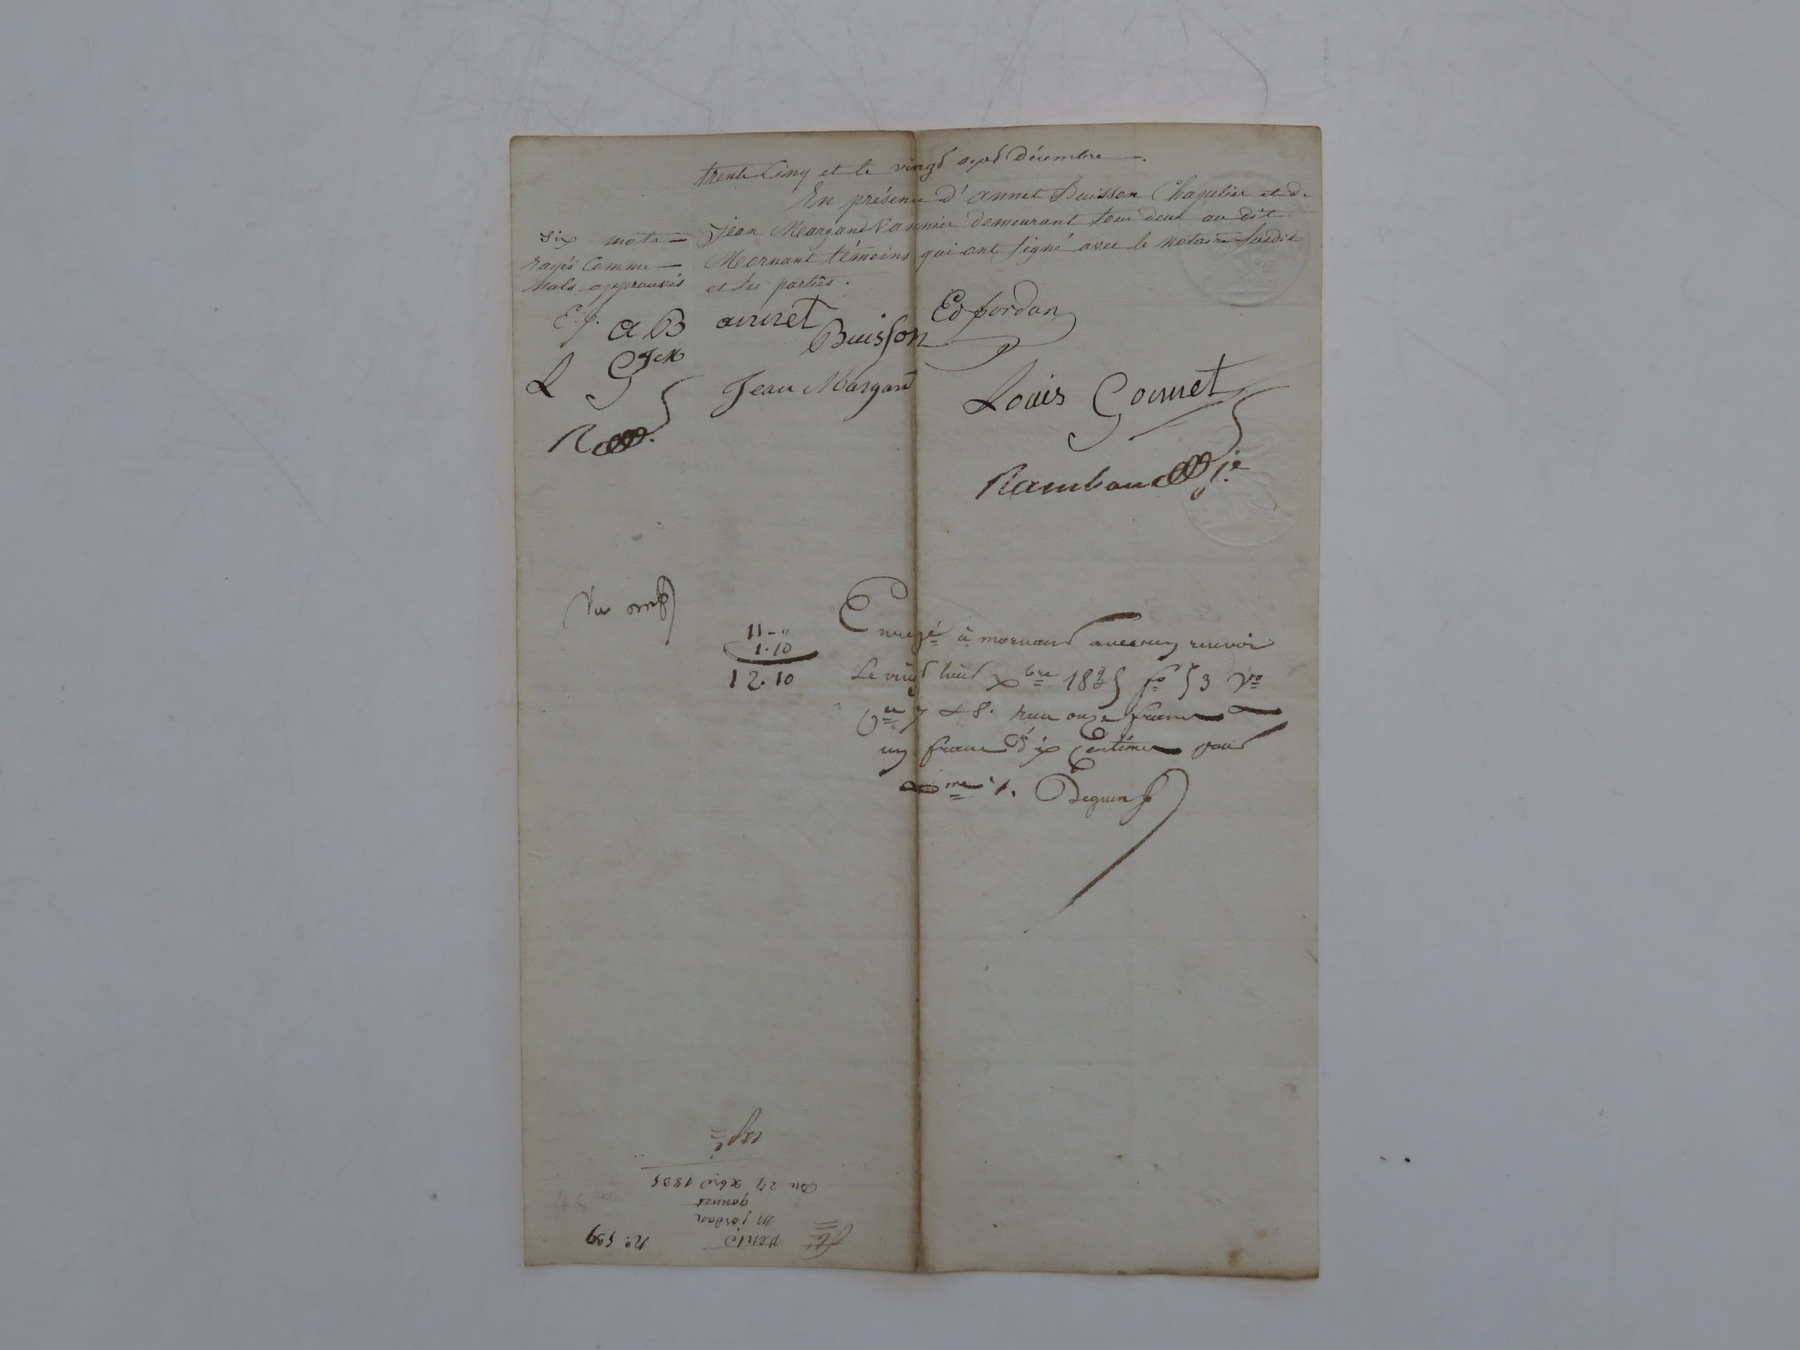 trente Cinq et le vingt sept Décembre
En présence d'annet Buisson Chapelier et de
jean Margand Vannier demeurant tous deux au dit
Mornant témoins qui ont signé avec le notaire susdit
et les parties.
six mots
rayés Comme
nuls approuvés
E. j. a B
L G J M
R
annet Buisson
Ed jordan
Jean Margand
Louis Gonnet
Rambaud
Vu
11 - "
1.10
12.10
Enregé à mornant renvoi
Le vingt huit xbre 1835 fo 53 Vo
Cse 7 & 8. reçu onze francs
un franc dix Centimes pour
Beguin
no. 599
vente
jordan
gonnet
Du 27 xbre 1835